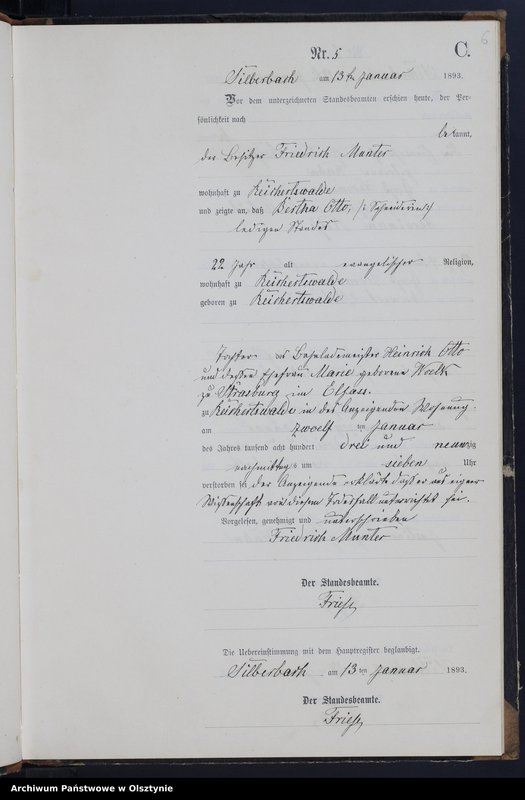 6
Nr. 5
C.
Silberbach am 13ten Januar 1893.
Vor dem unterzeichneten Standesbeamten erschien heute, der Per-
sönlichkeit nach
bekannt,
der Besitzer Friedrich Munter
wohnhaft zu Reichertswalde
und zeigte an, daß Bertha Otto, /: Schneiderin :/
ledigen Standes
22 Jahr alt evangelischer Religion,
wohnhaft zu Reichertswalde
geboren zu Reichertswalde
Tochter des Heinrich Otto
und dessen Ehefrau Marie geborene
zu Strasburg im Elsass.
zu Reichertswalde in des Anzeigenden Wohnung
am zwoelf ten Januar
des Jahres tausend acht hundert drei und neunzig
nachmittags um sieben Uhr
verstorben sei der Anzeigende erklärte dass er aus eigener
Wissenschaft von diesem Todesfall unterrichtet sei.
Vorgelesen, genehmigt und unterschrieben
Friedrich Munter
Der Standesbeamte.
Friese
Die Uebereinstimmung mit dem Hauptregister beglaubigt.
Silberbach am 13 ten Januar 1893.
Der Standesbeamte.
Friese
Archiwum Państwowe w Olsztynie